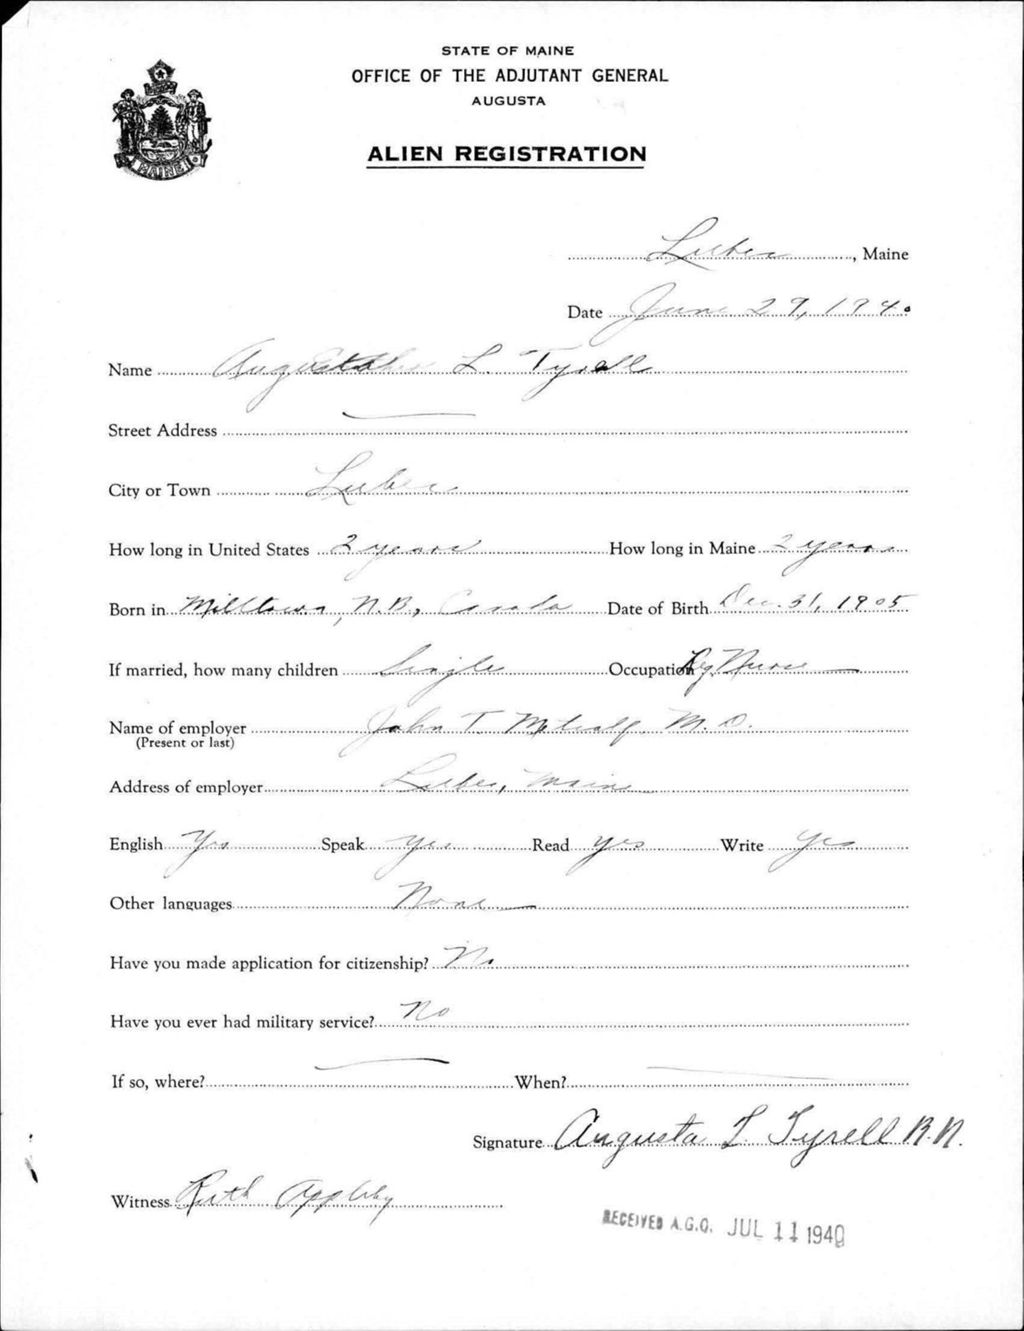 STATE OF MAINE
OFFICE OF THE ADJUTANT GENERAL
AUGUSTA
ALIEN REGISTRATION
MAINE
Lubec, Maine
Date June 29, 1940
Name Augusta L. Tyrell
Street Address —
City or Town Lubec
How long in United States 2 years How long in Maine 2 years
Born in Milltown, N.B., Canada Date of Birth Dec. 31, 1905
If married, how many children Single Occupation Reg Nurse
Name of employer John T. Metcalf M.D.
(Present or last)
Address of employer Lubec, Maine
English Yes Speak Yes Read Yes Write Yes
Other languages None
Have you made application for citizenship? No
Have you ever had military service? No
If so, where? — When? —
Signature Augusta L Tyrell R.N.
Witness Ruth Appleby
RECEIVED A.G.O. JUL 11 1940